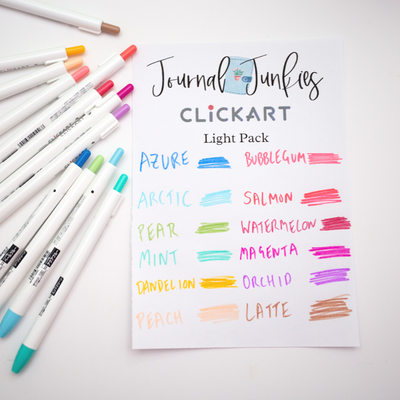 Journal Junkies
CLiCKART
Light Pack
AZURE BUBBLEGUM
ARCTIC SALMON
PEAR WATERMELON
MINT MAGENTA
DANDELION ORCHID
PEACH LATTE